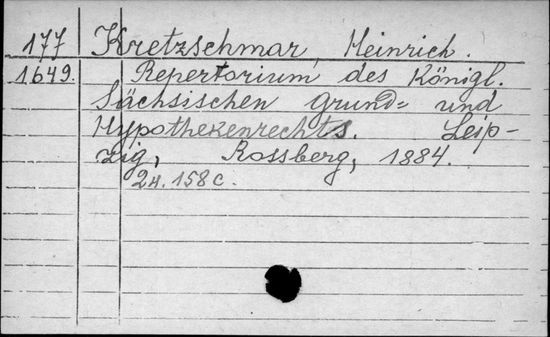 177 Kretzschmar, Heinrich.
1649. Repertorium des Königl.
Sächsischen Grund= und
Hypothekenrechts. Leip-
zig, Rossberg, 1884.
24. 158 c.